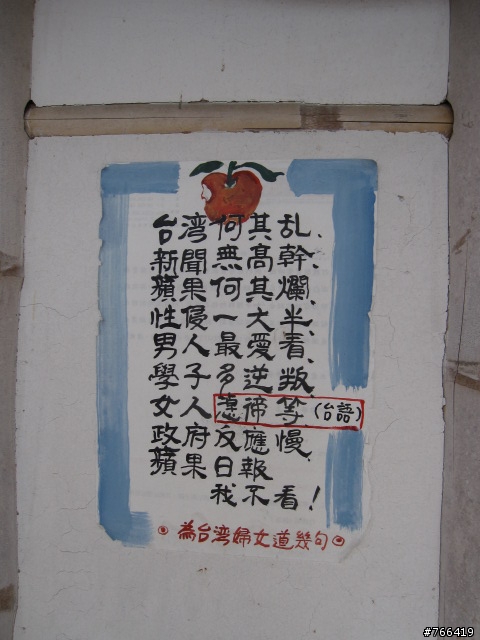 台湾何其乱、
新聞無高幹、
蘋果何其爛、
性侵一大半、
男人最愛看、
學子多逆叛、
女人等(台語)
政府反應慢、
蘋果日報
我不看！
為台湾婦女道幾句
#766419